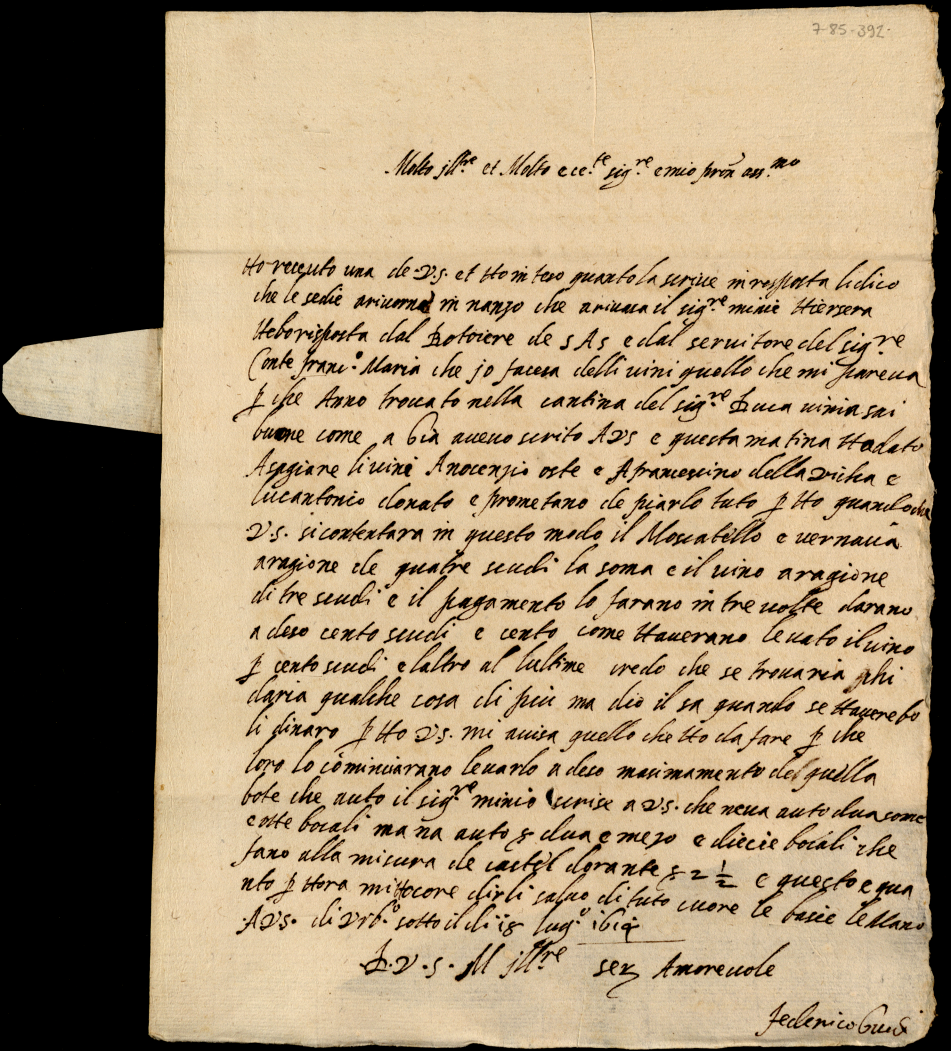 7-85-392-
Molto jll.re et Molto ece.te sig.re e mio pron oss.mo
Ho receuto una de V.S. et Ho inteso quanto la scrive in resposta li dico
che le sedie arivorna in nanzo che arivava il sig.re minie Hiersera
Hebo risposta dal de SAS e dal servitore del sig.re
Conte franc.o Maria che jo facesa delli vini quello che mi pareva
p che Anno trovato nella cantina del sig.re Luca vini asai
buone come a Gia aveva scrito AVS e questa matina Ho dato
Asagiare li vini Anocenzio oste e Afrancessino della e
lucantonio donato e prometano de piarlo tuto p Ho quando che
V.S. si contentara in questo modo il Moscatello e vernacia
aragione de quatre scudi la soma e il vino aragione
di tre scudi e il pagamento lo farano in tre volte darano
adeso cento scudi e cento come Haverano levato il vino
p cento scudi e laltro al lultime credo che se trovaria chi
daria qualche cosa di piu ma dio il sa quando se Haverebo
li dinaro p Ho V.S. mi avisa quello che Ho da fare p che
loro lo cominciarano levarlo adeso masimamento del quella
bote che auto il sig.re minio scrise a V.S. che neva auto dua some
e otte bocali ma na auto 8 dua e mezo e diecie bocali che
fano alla misura de castel dorante 8 2 1/2 e questo e qua
nto p Hora mi Hocore dirli salvo di tuto cuore le basie le Mano
AVS. di Urb.o sotto il di 18 lug.o
D.V.S. M jll.re ser Amorevole
Federico